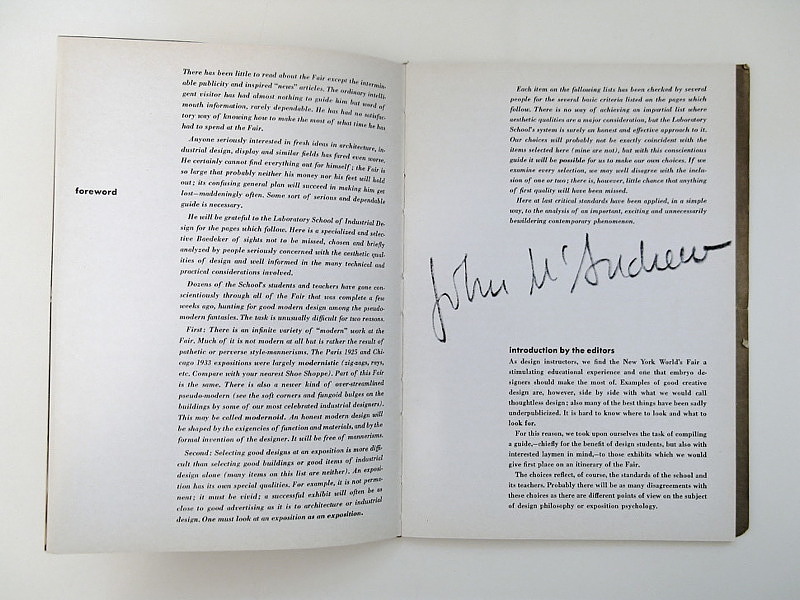 There has been little to read about the Fair except the intermin-
able publicity and inspired "news" articles. The ordinary intelli-
gent visitor has had almost nothing to guide him but word of
mouth information, rarely dependable. He has had no satisfac-
tory way of knowing how to make the most of what time he has
had to spend at the Fair.
Anyone seriously interested in fresh ideas in architecture, in-
dustrial design, display and similar fields has fared even worse.
He certainly cannot find everything out for himself; the Fair is
so large that probably neither his money nor his feet will hold
out; its confusing general plan will succeed in making him get
lost—maddeningly often. Some sort of serious and dependable
guide is necessary.
foreword
He will be grateful to the Laboratory School of Industrial De-
sign for the pages which follow. Here is a specialized and selec-
tive Baedeker of sights not to be missed, chosen and briefly
analyzed by people seriously concerned with the aesthetic qual-
ities of design and well informed in the many technical and
practical considerations involved.
Dozens of the School's students and teachers have gone con-
scientiously through all of the Fair that was complete a few
weeks ago, hunting for good modern design among the pseudo-
modern fantasies. The task is unusually difficult for two reasons.
First: There is an infinite variety of "modern" work at the
Fair. Much of it is not modern at all but is rather the result of
pathetic or perverse style-mannerisms. The Paris 1925 and Chi-
cago 1933 expositions were largely modernistic (zig-zags, rays,
etc. Compare with your nearest Shoe Shoppe). Part of this Fair
is the same. There is also a newer kind of over-streamlined
pseudo-modern (see the soft corners and fungoid bulges on the
buildings by some of our most celebrated industrial designers).
This may be called modernoid. An honest modern design will
be shaped by the exigencies of function and materials, and by the
formal invention of the designer. It will be free of mannerisms.
Second: Selecting good designs at an exposition is more diffi-
cult than selecting good buildings or good items of industrial
design alone (many items on this list are neither). An exposi-
tion has its own special qualities. For example, it is not perma-
nent; it must be vivid; a successful exhibit will often be as
close to good advertising as it is to architecture or industrial
design. One must look at an exposition as an exposition.
Each item on the following lists has been checked by several
people for the several basic criteria listed on the pages which
follow. There is no way of achieving an impartial list where
aesthetic qualities are a major consideration, but the Laboratory
School's system is surely an honest and effective approach to it.
Our choices will probably not be exactly coincident with the
items selected here (mine are not), but with this conscientious
guide it will be possible for us to make our own choices. If we
examine every selection, we may well disagree with the inclu-
sion of one or two; there is, however, little chance that anything
of first quality will have been missed.
Here at last critical standards have been applied, in a simple
way, to the analysis of an important, exciting and unnecessarily
bewildering contemporary phenomenon.
John McAndrew
introduction by the editors
As design instructors, we find the New York World's Fair a
stimulating educational experience and one that embryo de-
signers should make the most of. Examples of good creative
design are, however, side by side with what we would call
thoughtless design; also many of the best things have been sadly
underpublicized. It is hard to know where to look and what to
look for.
For this reason, we took upon ourselves the task of compiling
a guide,—chiefly for the benefit of design students, but also with
interested laymen in mind,—to those exhibits which we would
give first place on an itinerary of the Fair.
The choices reflect, of course, the standards of the school and
its teachers. Probably there will be as many disagreements with
these choices as there are different points of view on the subject
of design philosophy or exposition psychology.